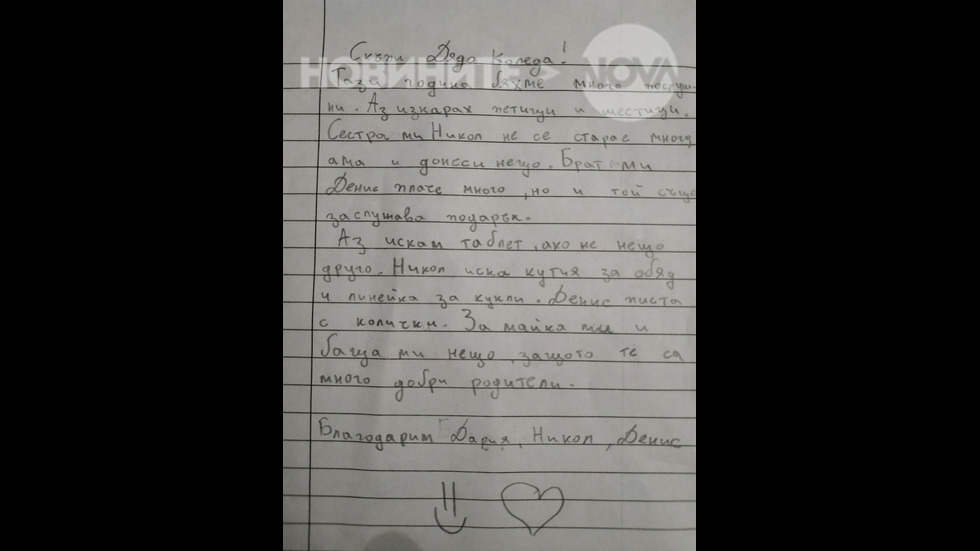 Скъпи Дядо Коледа!
НОВИНИТЕ NOVA
Таза година бяхме много послуш-
ни. Аз изкарах петици и шестици.
Сестра ми Никол не се старае много
ама и донеси нещо. Брат ми
Денис плаче много, но и той също
заслушава подарък.
Аз искам таблет, ако не нещо
друго. Никол иска кутия за обяд
и линейка за кукли. Денис писта
с колички. За майка ми и
баща ми нещо, защото те са
много добри родители.
Благодарим Дария, Никол, Денис